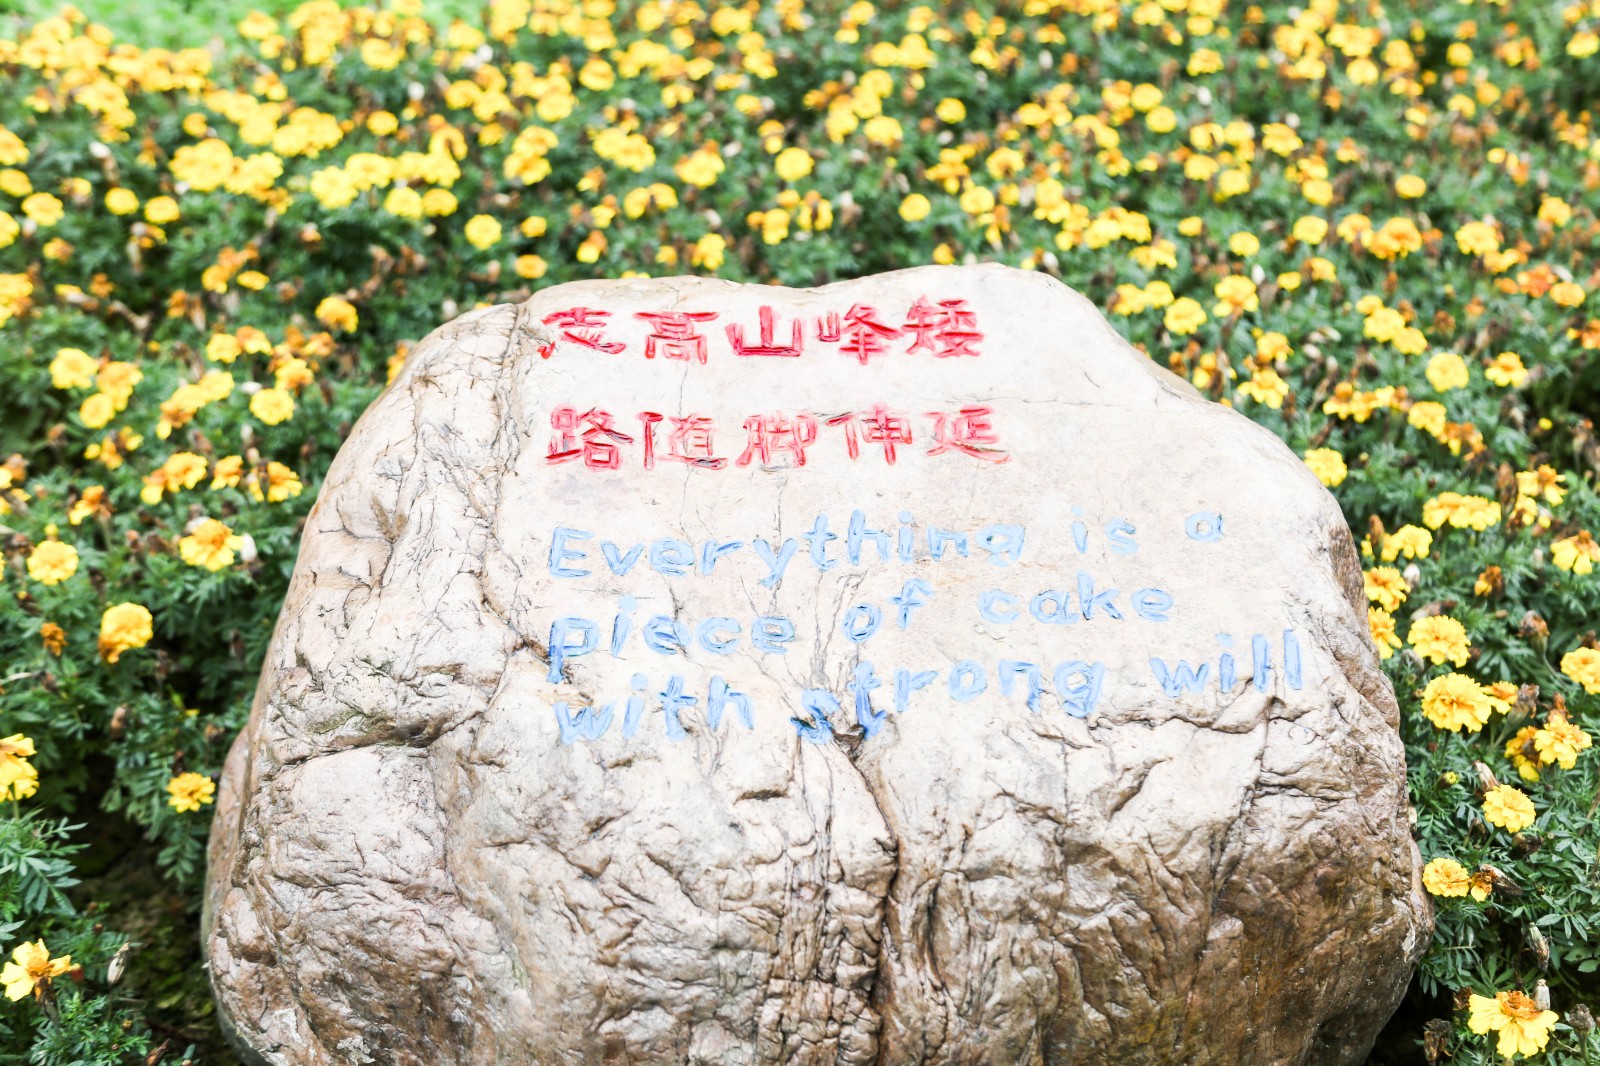 志高山峰矮
路随脚伸延
Everything is a
piece of cake
with strong will